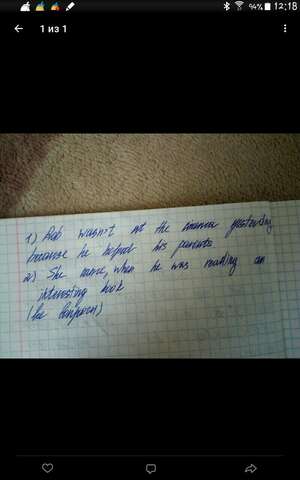 94% 12:18
1 из 1
1) Rob wasn't at the cinema yesterday
because he helped his parents
2) She came, when he was reading an
interesting book